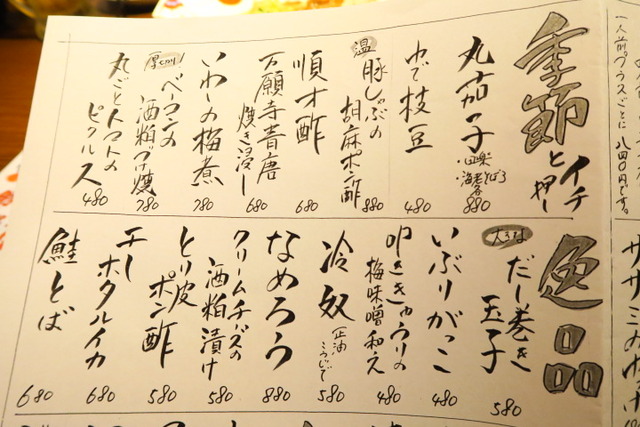 季節とイチ押し
丸茄子
・田楽
・海老そぼろ
各880
ゆで枝豆
480
温
豚しゃぶの
胡麻ポン酢
880
順才酢
680
万願寺青唐
焼き浸し
680
いわしの梅煮
780
厚切り!
ベーコンの
酒粕づけ焼
780
丸ごとトマトの
ピクルス
480
逸品
大きな
だし巻き
玉子
580
いぶりがっこ
480
叩ききゅうりの
梅味噌和え
480
冷奴
580
なめろう
880
クリームチーズの
酒粕漬け
580
とり皮
ポン酢
580
干し
ホタルイカ
680
鮭とば
680
一人前。プラスごとに八四〇円です。